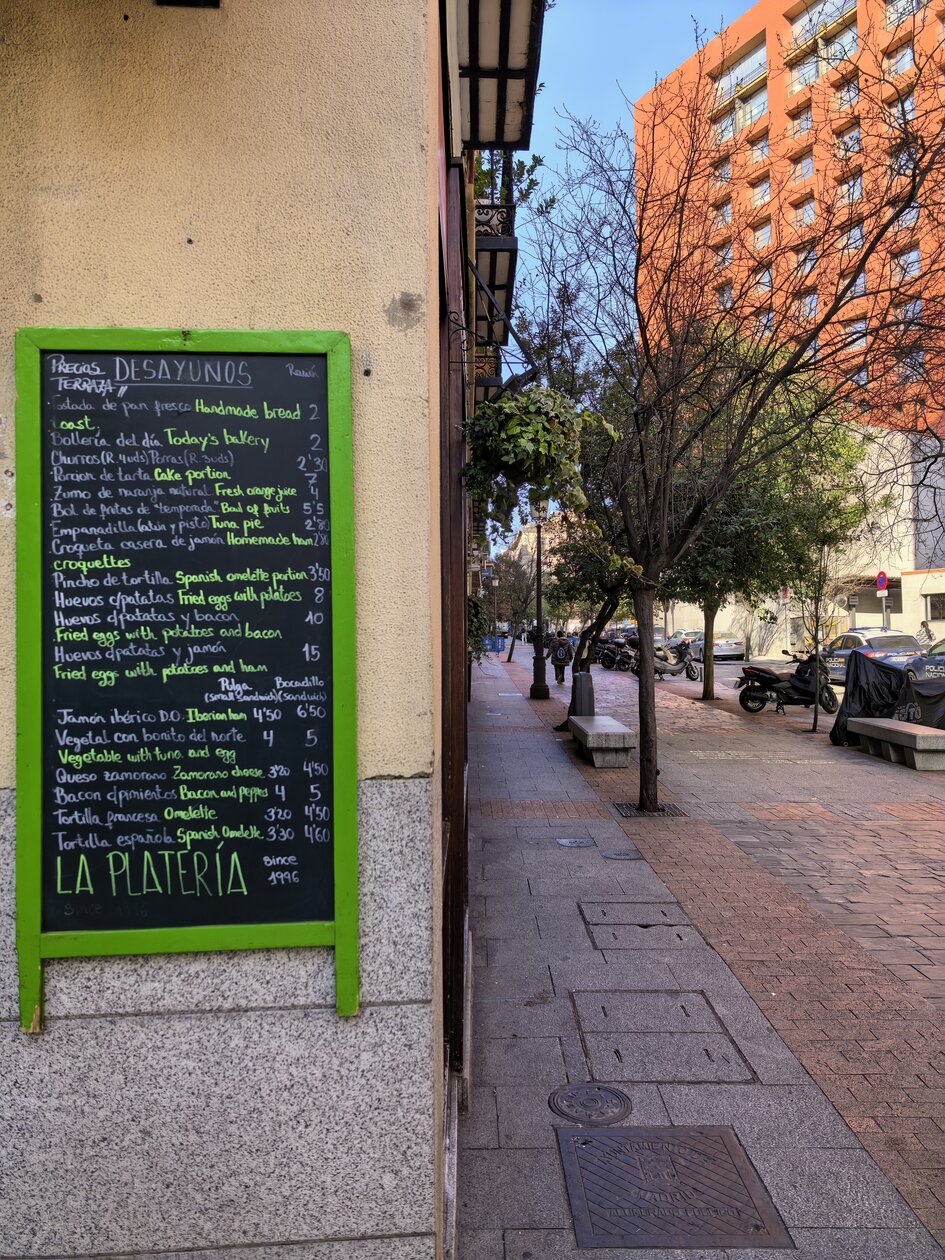 PRECIOS DESAYUNOS Ración
TERRAZA
Tostada de pan fresco Handmade bread 2
toast,
Bollería del día Today's bakery 2
Churros (R. 4uds) Porras (R. 3uds) 2'30
Porcion de tarta Cake portion 7
Zumo de naranja natural Fresh orange juice 4
Bol de frutas de "temporada" Bowl of fruits 5'5
Empanadilla (atún y pisto) Tuna pie 2'80
Croqueta casera de jamón Homemade ham 2'80
croquettes
Pincho de tortilla Spanish omelette portion 3'50
Huevos c/patatas Fried eggs with potatoes 8
Huevos c/patatas y bacon 10
Fried eggs with potatoes and bacon
Huevos c/patatas y jamón 15
Fried eggs with potatoes and ham
Pulga Bocadillo
(small sandwich) (sandwich)
Jamón ibérico D.O. Iberian ham 4'50 6'50
Vegetal con bonito del norte 4 5
Vegetable with tuna and egg
Queso zamorano Zamorano cheese 3'20 4'50
Bacon c/pimientos Bacon and peppers 4 5
Tortilla francesa Omelette 3'20 4'50
Tortilla española Spanish Omelette 3'30 4'60
LA PLATERÍA since
1996
since 1996
POLICIA
NACIONAL
POLICIA
NACIONAL
AYUNTAMIENTO DE
MADRID
ALUMBRADO PUBLICO